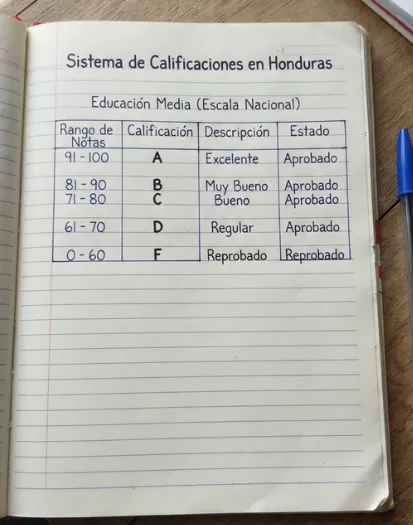 Sistema de Calificaciones en Honduras
Educación Media (Escala Nacional)
Rango de Notas Calificación Descripción Estado
91 - 100 A Excelente Aprobado
81 - 90 B Muy Bueno Aprobado
71 - 80 C Bueno Aprobado
61 - 70 D Regular Aprobado
0 - 60 F Reprobado Reprobado